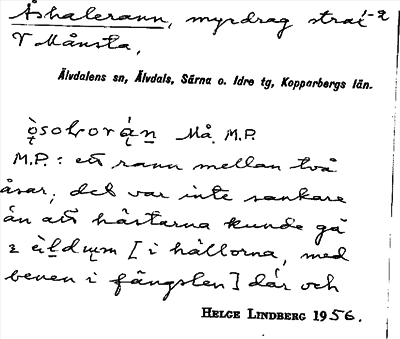 Åshalerann, myrdrag strax
V Månsta,
Älvdalens sn, Älvdals, Särna o. Idre tg, Kopparbergs län.
Må. M.P.
M.P.: ett rann mellan två
åsar; det var inte sankare
än att hästarna kunde gå
[i hällorna, med
benen i fängslen] där och
HELGE LINDBERG 1956.